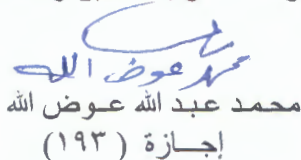 محمد عوض الله
محمد عبد الله عوض الله
إجازة (١٩٣)